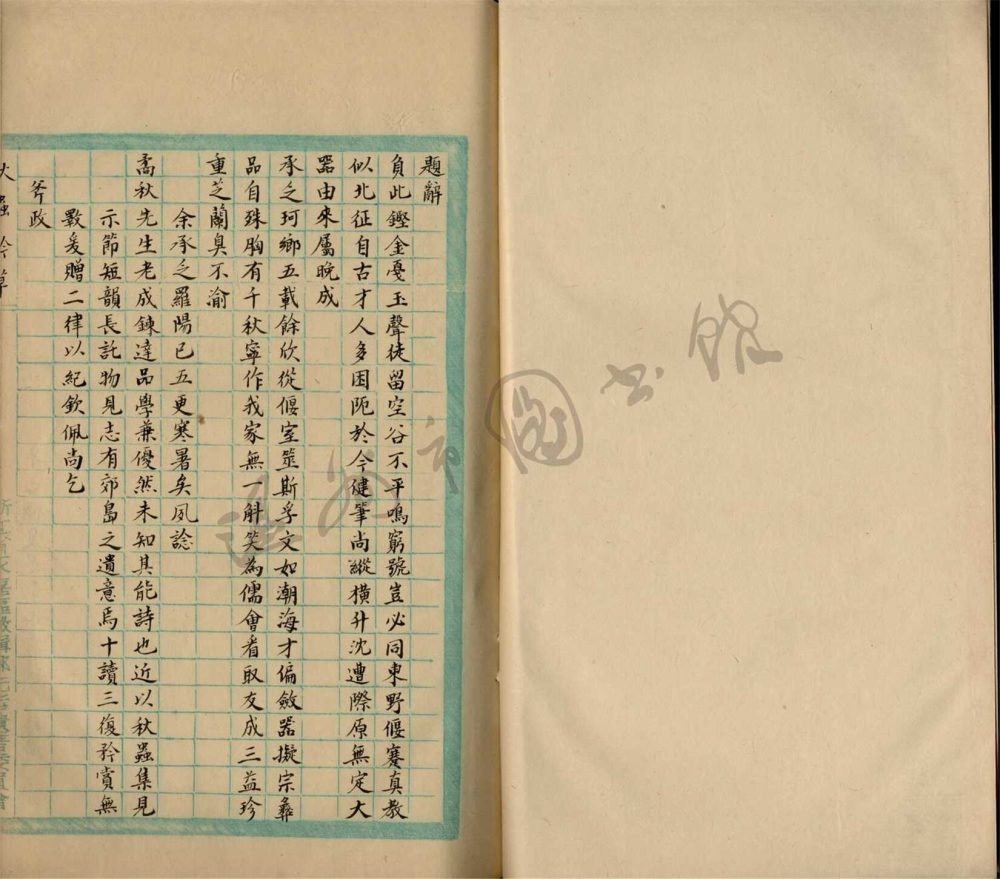 題辭
負此鏗金戞玉聲徒留空谷不平鳴窮號豈必同東野偃蹇真教
似北征自古才人多困阨於今健筆尚縱橫升沈遭際原無定大
器由來屬晚成
承乏珂鄉五載餘欣從偃室筮斯孚文如潮海才偏斂器擬宗彝
品自殊胸有千秋寧作我家無一斛笑為儒會看取友成三益珍
重芝蘭臭不渝
余承乏羅陽已五更寒暑矣夙諗
矞秋先生老成鍊達品學兼優然未知其能詩也近以秋蟲集見
示節短韻長託物見志有郊島之遺意焉十讀三復矜賞無
斁爰贈二律以紀欽佩尚乞
斧政
蟲
圖書館